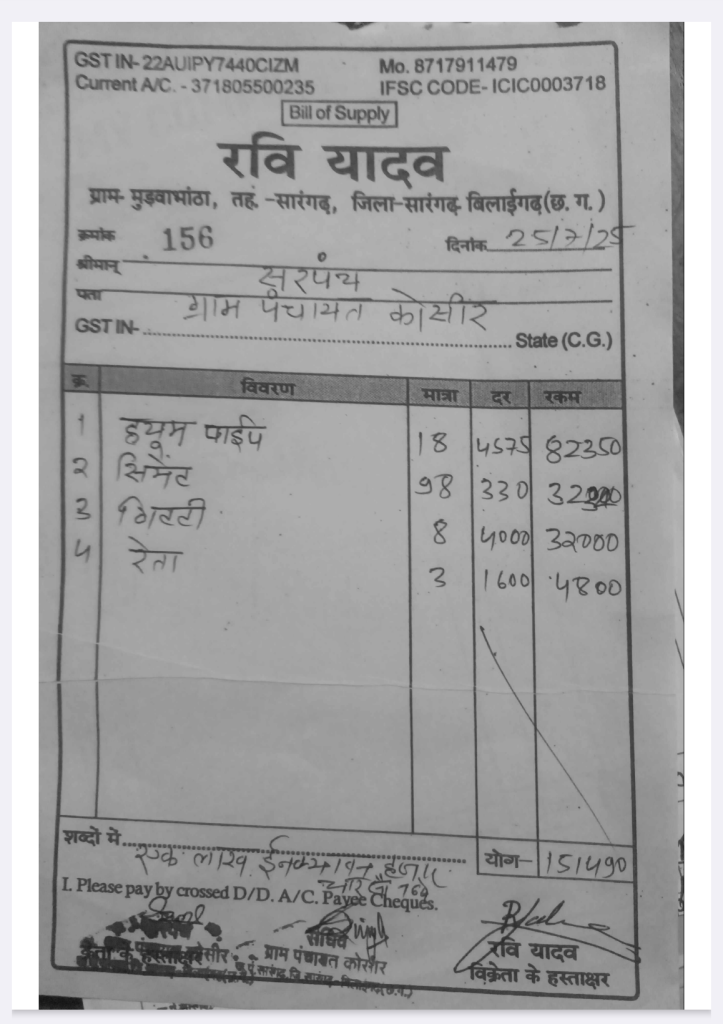 GST IN- 22AUIPY7440CIZM Mo. 8717911479
Current A/C. - 371805500235 IFSC CODE- ICIC0003718
Bill of Supply
रवि यादव
ग्राम- मुड़वाभांठा, तह. -सारंगढ़, जिला-सारंगढ़ बिलाईगढ़(छ. ग.)
क्रमांक 156 दिनांक 25/7/25
श्रीमान् सरपंच
पता ग्राम पंचायत कोसीर
GST IN- State (C.G.)
क्र. विवरण मात्रा दर रकम
1 हयूम पाईप 18 4575 82350
2 सिमेंट 98 330
3 गिटटी 8 4000 32000
4 रेता 3 1600 4800
शब्दों में एक लाख हजार योग- 151490
चार सौ
I. Please pay by crossed D/D. A/C. Payee Cheques.
सचिव
ग्राम पंचायत कोसीर रवि यादव
क्रेता के हस्ताक्षर विक्रेता के हस्ताक्षर